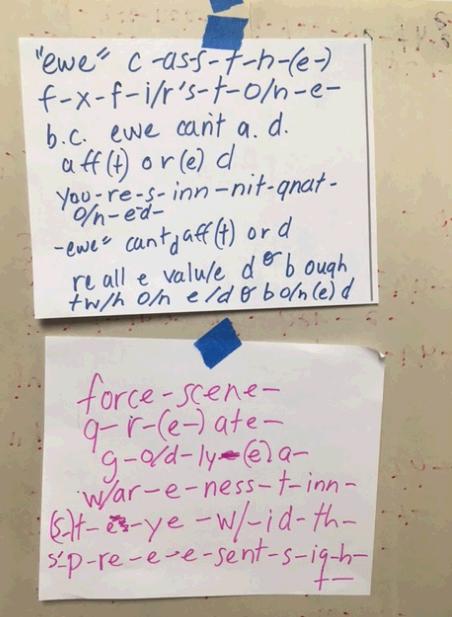 "ewe" c-ass-t-h-(e-)
f-x-f-i/r's-t-o/n-e-
b.c. ewe can't a. d.
aff(t) or(e) d
you-re-s-inn-nit-gnat-
o/n-ed-
-ewe" cant, aff(t) or d
re all e value d & b ough
t w/h o/n e/d & b o/n (e) d
force-scene-
q-r-(e-) ate-
g-o/d-ly-(e)a-
w/ar-e-ness-t-inn-
(s-)t-e-ye-w/-id-th-
s'p-re-e-e-sent-s-ig-h-
t-